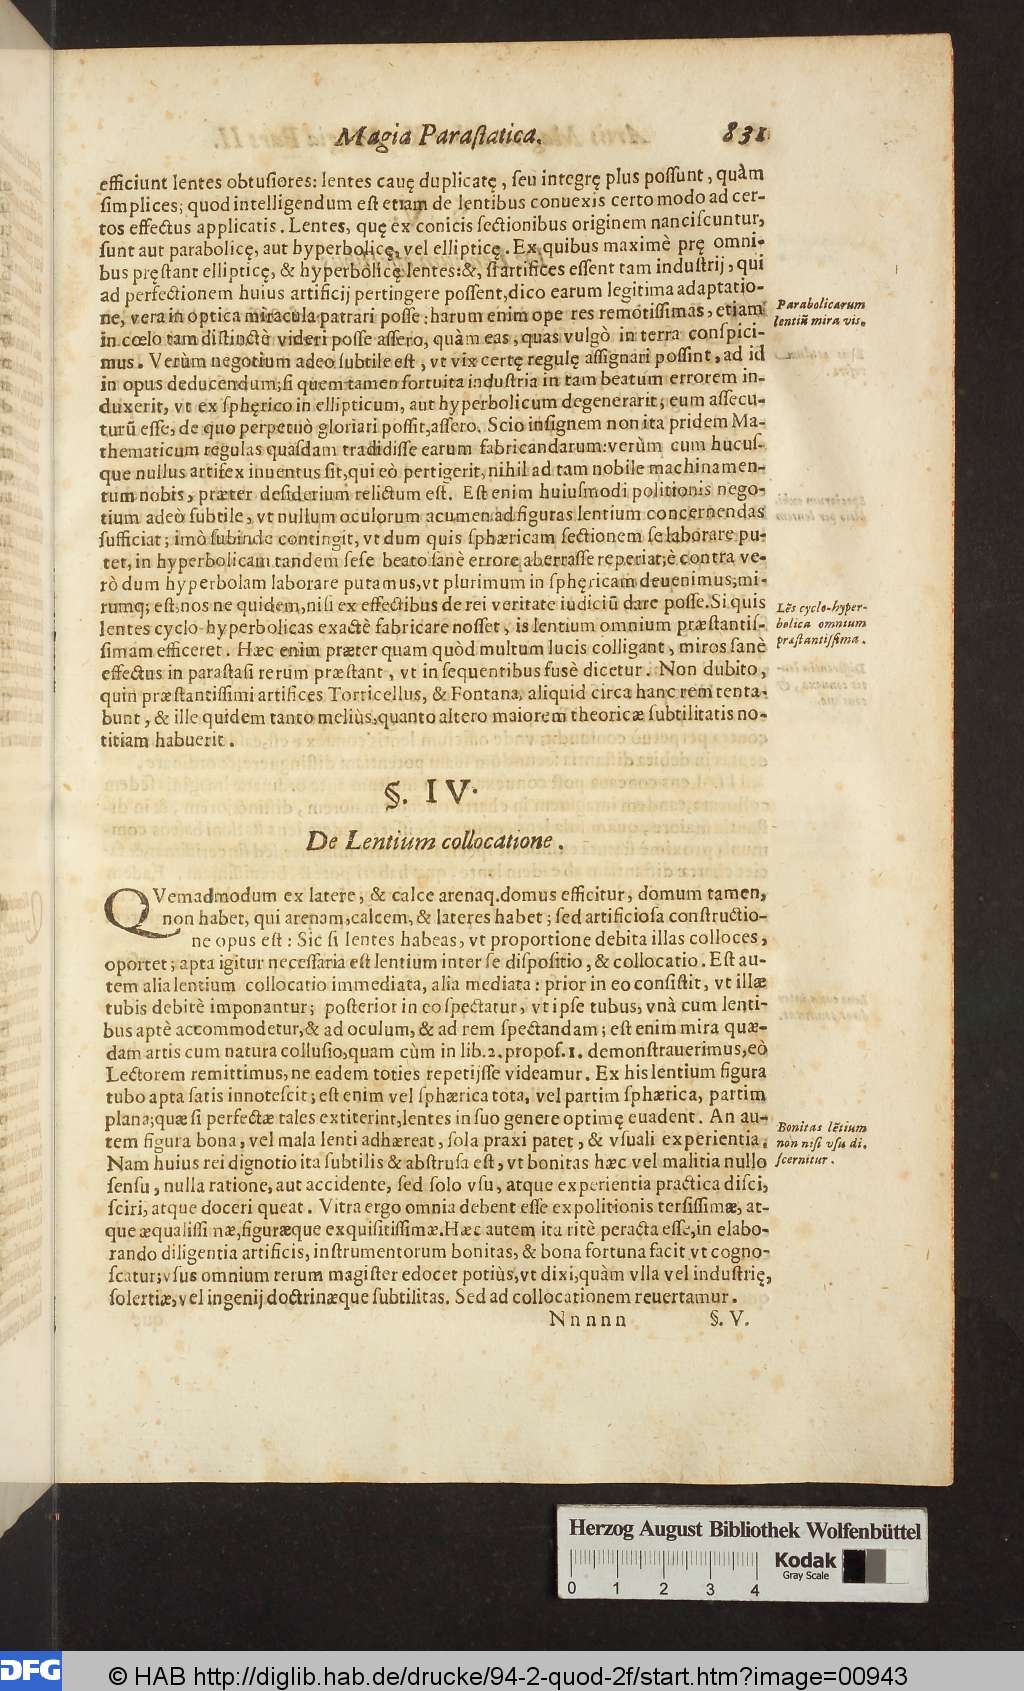 Magia Paraſtatica. 831
efficiunt lentes obtuſiores: lentes cauę duplicatę, ſeu integrę plus poſſunt, quàm
ſimplices; quod intelligendum eſt etiam de lentibus conuexis certo modo ad cer-
tos effectus applicatis. Lentes, quę ex conicis ſectionibus originem nanciſcuntur,
ſunt aut parabolicę, aut hyperbolicę, vel ellipticę. Ex quibus maximè prę omni-
bus pręſtant ellipticę, & hyperbolicę lentes: &, ſi artifices eſſent tam induſtrij, qui
ad perfectionem huius artificij pertingere poſſent, dico earum legitima adaptatio-
ne, vera in optica miracula patrari poſſe: harum enim ope res remotiſſimas, etiam
in cœlo tam diſtinctè videri poſſe aſſero, quàm eas, quas vulgò in terra conſpici-
mus. Verùm negotium adeo ſubtile eſt, vt vix certę regulę aſſignari poſſint, ad id
in opus deducendum; ſi quem tamen fortuita induſtria in tam beatum errorem in-
duxerit, vt ex ſphęrico in ellipticum, aut hyperbolicum degenerarit; eum aſſecu-
turū eſſe, de quo perpetuò gloriari poſſit, aſſero. Scio inſignem non ita pridem Ma-
thematicum regulas quaſdam tradidiſſe earum fabricandarum: verùm cum hucuſ-
que nullus artifex inuentus ſit, qui eò pertigerit, nihil ad tam nobile machinamen-
tum nobis, præter deſiderium relictum eſt. Eſt enim huiuſmodi politionis nego-
tium adeò ſubtile, vt nullum oculorum acumen ad figuras lentium concernendas
ſufficiat; imò ſubinde contingit, vt dum quis ſphæricam ſectionem ſe laborare pu-
tet, in hyperbolicam tandem ſeſe beato ſanè errore aberraſſe reperiat; è contra ve-
rò dum hyperbolam laborare putamus, vt plurimum in ſphęricam deuenimus; mi-
rumq; eſt, nos ne quidem, niſi ex effectibus de rei veritate iudiciū dare poſſe. Si quis
lentes cyclo-hyperbolicas exactè fabricare noſſet, is lentium omnium præſtantiſ-
ſimam efficeret. Hæc enim præter quam quòd multum lucis colligant, miros ſanè
effectus in paraſtaſi rerum præſtant, vt in ſequentibus fusè dicetur. Non dubito,
quin præſtantiſſimi artifices Torricellus, & Fontana, aliquid circa hanc rem tenta-
bunt, & ille quidem tanto meliùs, quanto altero maiorem theoricæ ſubtilitatis no-
titiam habuerit.
Parabolicarum
lentiū mira vis.
Lēs cyclo-hyper-
bolica omnium
præſtantiſſima.
§. IV.
De Lentium collocatione.
QVemadmodum ex latere, & calce arenaq. domus efficitur, domum tamen,
non habet, qui arenam, calcem, & lateres habet; ſed artificioſa conſtructio-
ne opus eſt: Sic ſi lentes habeas, vt proportione debita illas colloces,
oportet; apta igitur neceſſaria eſt lentium inter ſe diſpoſitio, & collocatio. Eſt au-
tem alia lentium collocatio immediata, alia mediata: prior in eo conſiſtit, vt illæ
tubis debitè imponantur; poſterior in eo ſpectatur, vt ipſe tubus, vnà cum lenti-
bus aptè accommodetur, & ad oculum, & ad rem ſpectandam; eſt enim mira quæ-
dam artis cum natura colluſio, quam cùm in lib. 2. propoſ. 1. demonſtrauerimus, eò
Lectorem remittimus, ne eadem toties repetijſſe videamur. Ex his lentium figura
tubo apta ſatis innoteſcit; eſt enim vel ſphærica tota, vel partim ſphærica, partim
plana; quæ ſi perfectæ tales extiterint, lentes in ſuo genere optimę euadent. An au-
tem figura bona, vel mala lenti adhæreat, ſola praxi patet, & vſuali experientia.
Nam huius rei dignotio ita ſubtilis & abſtruſa eſt, vt bonitas hæc vel malitia nullo
ſenſu, nulla ratione, aut accidente, ſed ſolo vſu, atque experientia practica diſci,
ſciri, atque doceri queat. Vitra ergo omnia debent eſſe expolitionis terſiſſimæ, at-
que æqualiſſi næ, figuræque exquiſitiſſimæ. Hæc autem ita ritè peracta eſſe, in elabo-
rando diligentia artificis, inſtrumentorum bonitas, & bona fortuna facit vt cogno-
ſcatur; vſus omnium rerum magiſter edocet potiùs, vt dixi, quàm vlla vel induſtrię,
ſolertiæ, vel ingenij doctrinæque ſubtilitas. Sed ad collocationem reuertamur.
Bonitas lētium
non niſi vſu di-
ſcernitur.
Nnnnn §. V.
Herzog August Bibliothek Wolfenbüttel
Kodak
Gray Scale
0 1 2 3 4
DFG
© HAB http://diglib.hab.de/drucke/94-2-quod-2f/start.htm?image=00943